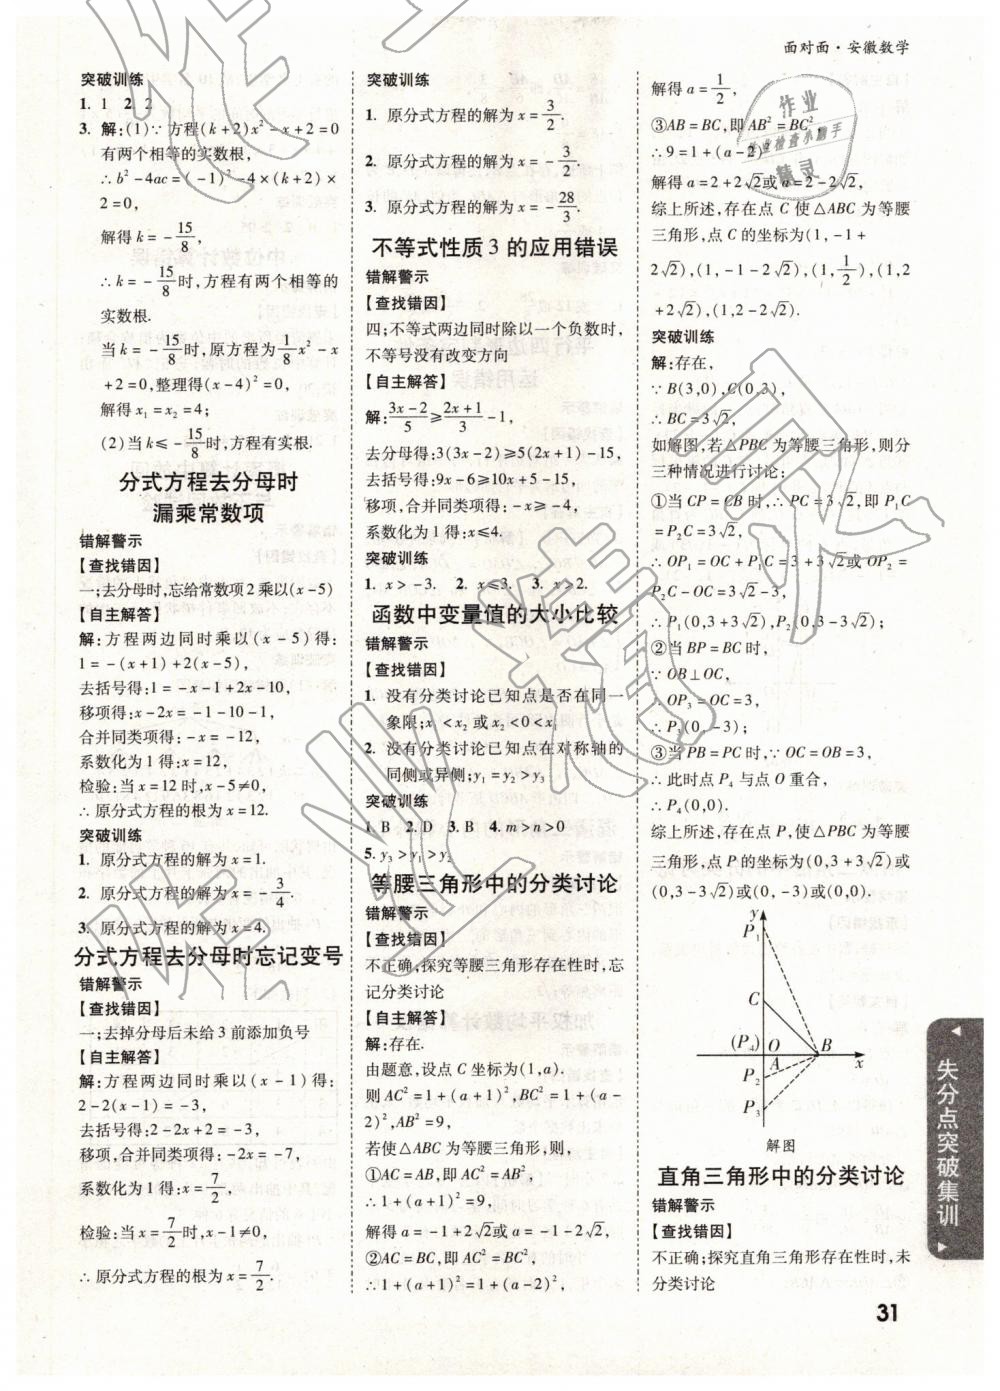 面对面·安徽数学
突破训练
1. 1  2. 2
3. 解:(1)∵方程(k+2)x²-x+2=0
有两个相等的实数根,
∴b²-4ac=(-1)²-4×(k+2)×
2=0,
解得 k=-15/8,
∴当 k=-15/8时,方程有两个相等的
实数根.
当 k=-15/8时,原方程为1/8x²-x
+2=0,整理得(x-4)²=0,
解得 x₁=x₂=4;
(2)当 k≤-15/8时,方程有实根.
分式方程去分母时
漏乘常数项
错解警示
【查找错因】
一;去分母时,忘给常数项2乘以(x-5)
【自主解答】
解:方程两边同时乘以(x-5)得:
1=-(x+1)+2(x-5),
去括号得:1=-x-1+2x-10,
移项得:x-2x=-1-10-1,
合并同类项得:-x=-12,
系数化为1得:x=12,
检验:当 x=12时,x-5≠0,
∴原分式方程的根为 x=12.
突破训练
1. 原分式方程的解为 x=1.
2. 原分式方程的解为 x=-3/4.
3. 原分式方程的解为 x=4.
分式方程去分母时忘记变号
错解警示
【查找错因】
一;去掉分母后未给3前添加负号
【自主解答】
解:方程两边同时乘以(x-1)得:
2-2(x-1)=-3,
去括号得:2-2x+2=-3,
移项,合并同类项得:-2x=-7,
系数化为1得:x=7/2,
检验:当 x=7/2时,x-1≠0,
∴原分式方程的根为 x=7/2.
突破训练
1. 原分式方程的解为 x=3/2.
2. 原分式方程的解为 x=-3/2.
3. 原分式方程的解为 x=-28/3.
不等式性质3的应用错误
错解警示
【查找错因】
四;不等式两边同时除以一个负数时,
不等号没有改变方向
【自主解答】
解:(3x-2)/5≥(2x+1)/3-1,
去分母得:3(3x-2)≥5(2x+1)-15,
去括号得:9x-6≥10x+5-15,
移项,合并同类项得:-x≥-4,
系数化为1得:x≤4.
突破训练
1. x>-3.  2. x≤3.  3. x>2.
函数中变量值的大小比较
错解警示
【查找错因】
1. 没有分类讨论已知点是否在同一
象限;x₁<x₂或x₂<0<x₁
2. 没有分类讨论已知点在对称轴的
同侧或异侧;y₁=y₂>y₃
突破训练
1. B  2. D  3. B  4. m>n>0
5. y₃>y₁>y₂
等腰三角形中的分类讨论
错解警示
【查找错因】
不正确,探究等腰三角形存在性时,忘
记分类讨论
【自主解答】
解:存在.
由题意,设点C坐标为(1,a),
则AC²=1+(a+1)²,BC²=1+(a-
2)²,AB²=9,
若使△ABC为等腰三角形,则,
①AC=AB,即AC²=AB²,
∴1+(a+1)²=9,
解得 a=-1+2√2或 a=-1-2√2
②AC=BC,即AC²=BC²,
∴1+(a+1)²=1+(a-2)²,
解得 a=1/2,
③AB=BC,即AB²=BC²
∴9=1+(a-2)²
解得 a=2+2√2或 a=2-2√2,
综上所述,存在点C使△ABC为等腰
三角形,点C的坐标为(1,-1+
2√2),(1,-1-2√2),(1,1/2),(1,2
+2√2),(1,2-2√2).
突破训练
解:存在,
∵B(3,0),C(0,3),
∴BC=3√2,
如解图,若△PBC为等腰三角形,则分
三种情况进行讨论:
①当CP=CB时,∴PC=3√2,即P₁C
=P₂C=3√2,
∴OP₁=OC+P₁C=3+3√2或OP₂=
P₂C-OC=3√2-3,
∴P₁(0,3+3√2),P₂(0,3-3√2);
②当BP=BC时,
∵OB⊥OC,
∴OP₃=OC=3,
∴P₃(0,-3);
③当PB=PC时,∵OC=OB=3,
∴此时点P₄与点O重合,
∴P₄(0,0).
综上所述,点P的坐标为(0,3+3√2)或
(0,3-3√2)或(0,-3)或(0,0).
y
P₁
C
(P₄) O A B x
P₂
P₃
解图
直角三角形中的分类讨论
错解警示
【查找错因】
不正确;探究直角三角形存在性时,未
分类讨论
失分点突破集训
31
作业
作业检查小帮手
精灵